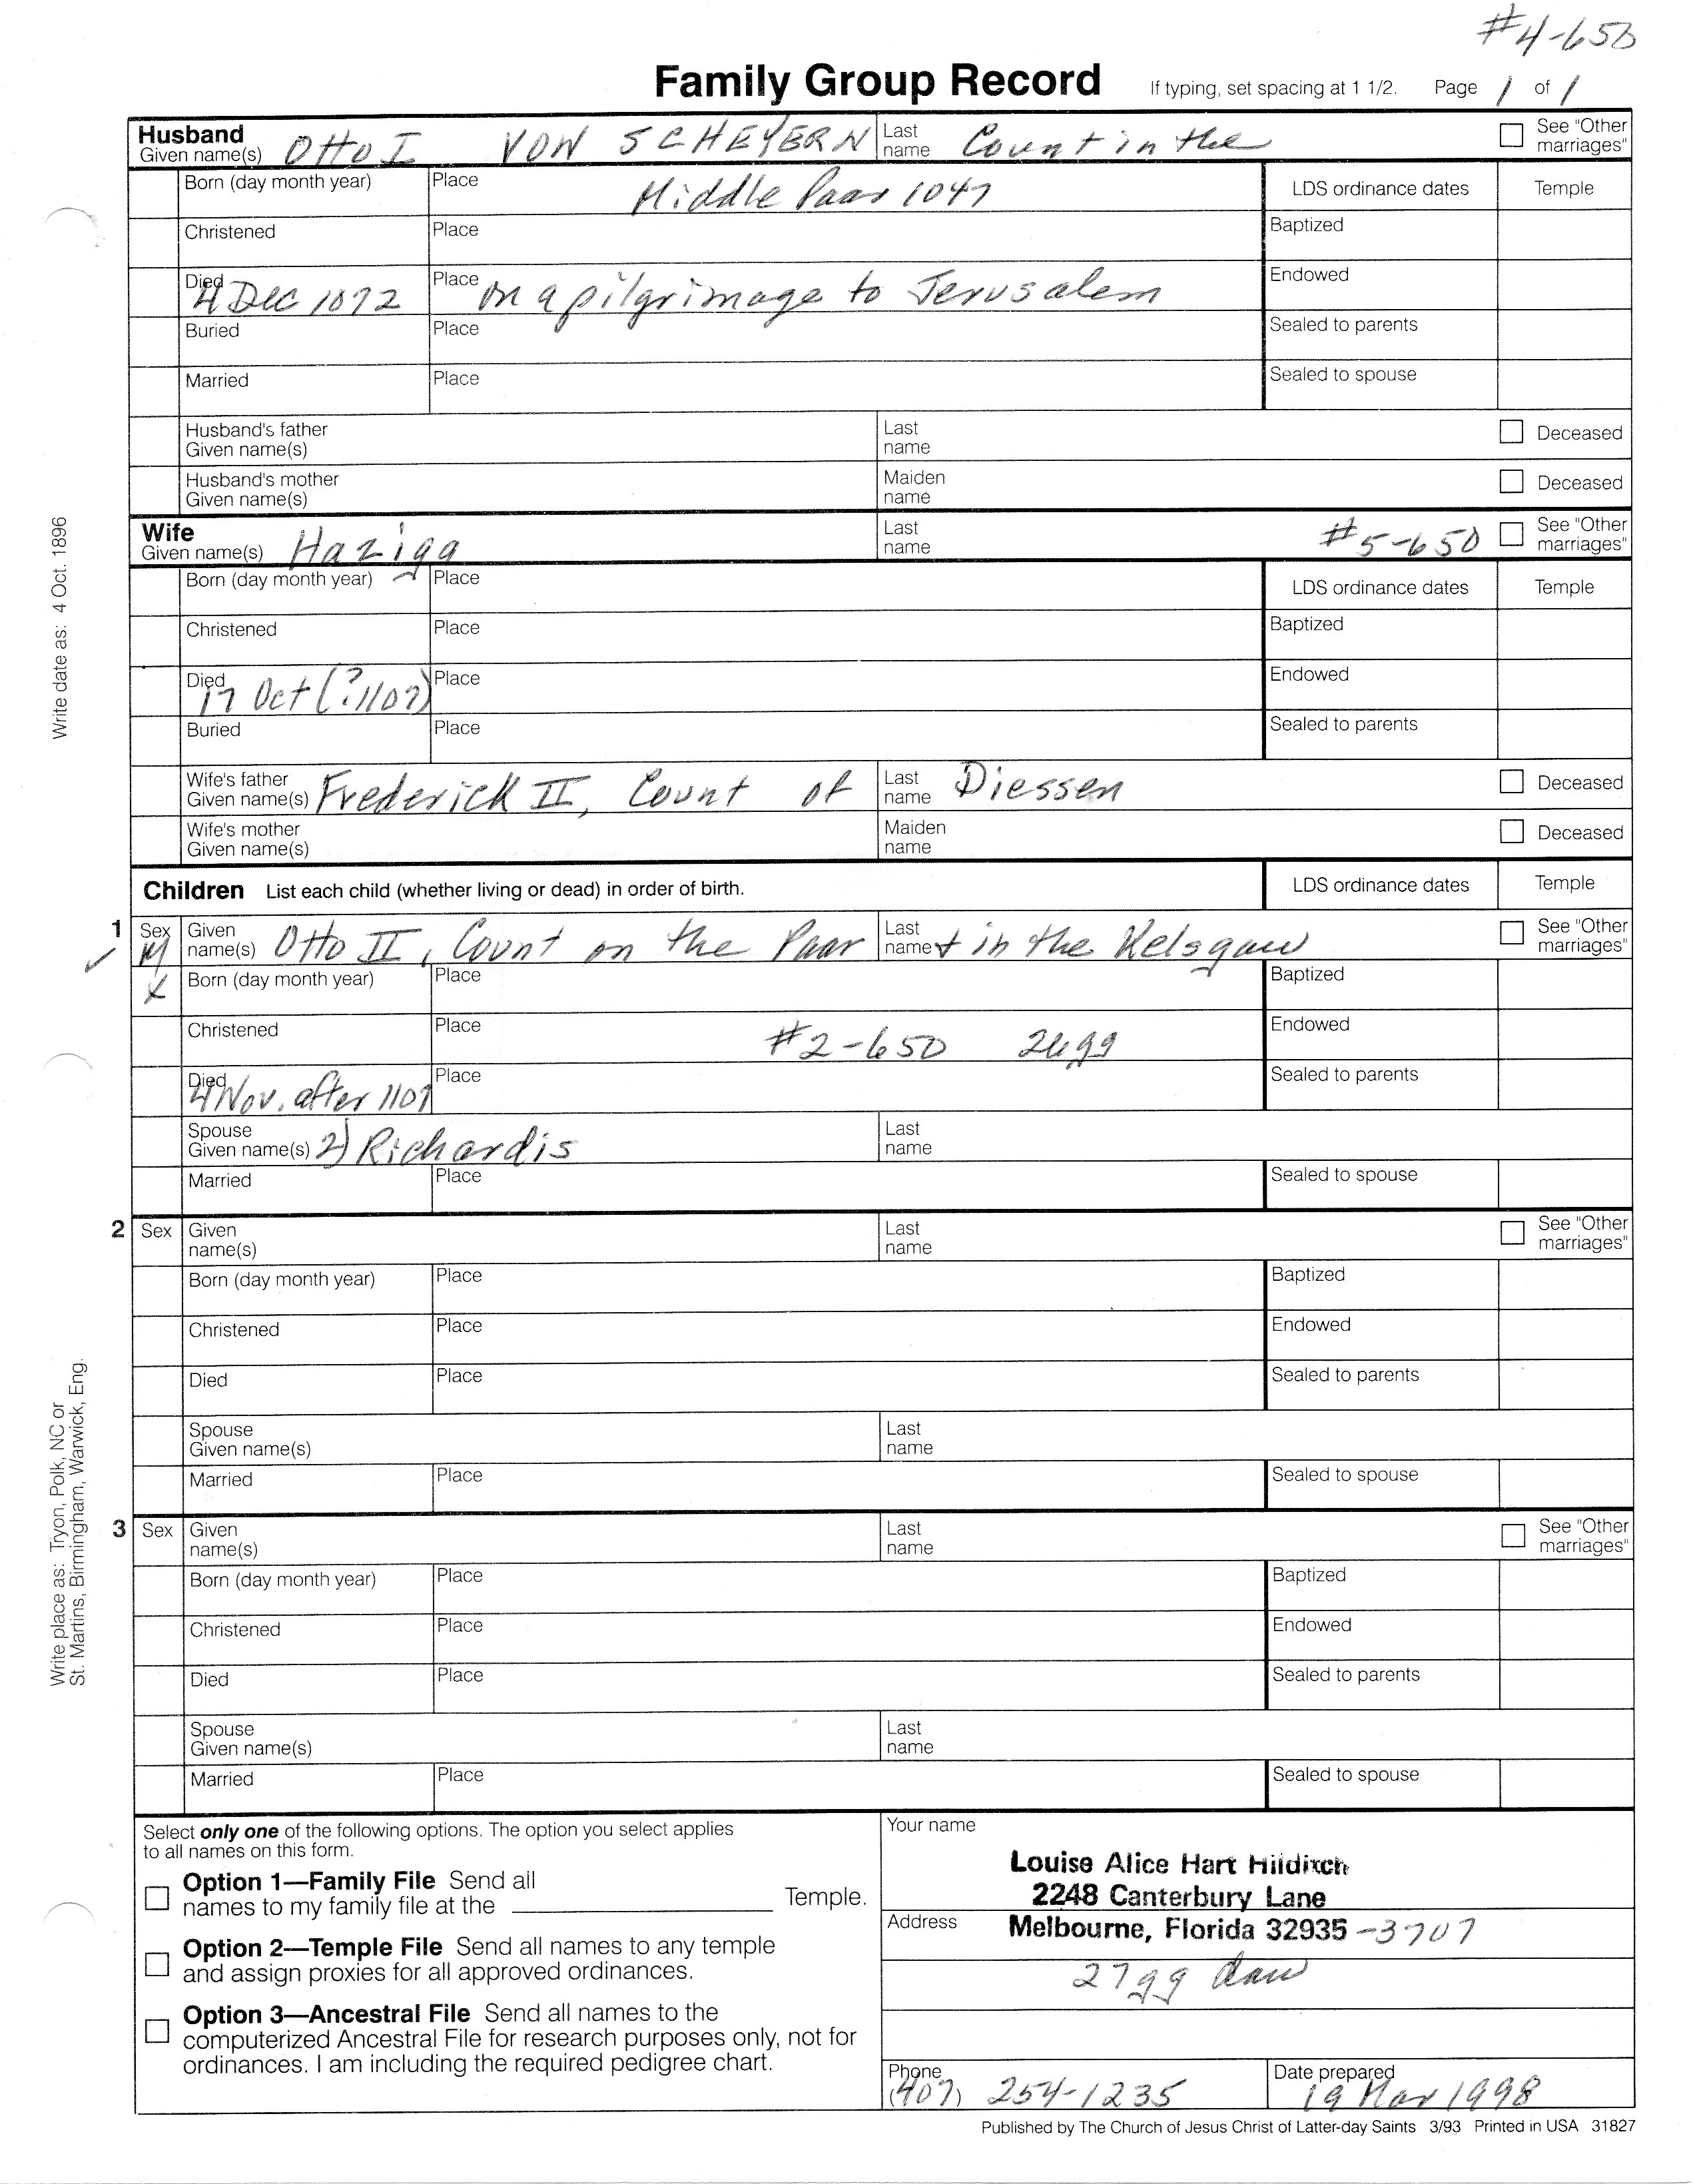 #4-650
Family Group Record If typing, set spacing at 1 1/2. Page 1 of 1
Husband
Given name(s) Otto I VON SCHEYERN Last name Count in the See "Other marriages"
Born (day month year) Place Middle Paar 1047 LDS ordinance dates Temple
Christened Place Baptized
Died 4 Dec 1072 Place on a pilgrimage to Jerusalem Endowed
Buried Place Sealed to parents
Married Place Sealed to spouse
Husband's father Given name(s) Last name Deceased
Husband's mother Given name(s) Maiden name Deceased
Wife
Given name(s) Haziga Last name #5-650 See "Other marriages"
Born (day month year) Place LDS ordinance dates Temple
Christened Place Baptized
Died 17 Oct (?1107) Place Endowed
Buried Place Sealed to parents
Wife's father Given name(s) Frederick II, Count of Last name Diessen Deceased
Wife's mother Given name(s) Maiden name Deceased
Children List each child (whether living or dead) in order of birth. LDS ordinance dates Temple
1 Sex M Given name(s) Otto II, Count on the Paar Last name + in the Kelsgau See "Other marriages"
X Born (day month year) Place Baptized
Christened Place #2-650 26gg Endowed
Died 4 Nov. after 1107 Place Sealed to parents
Spouse Given name(s) 2) Richardis Last name
Married Place Sealed to spouse
2 Sex Given name(s) Last name See "Other marriages"
Born (day month year) Place Baptized
Christened Place Endowed
Died Place Sealed to parents
Spouse Given name(s) Last name
Married Place Sealed to spouse
3 Sex Given name(s) Last name See "Other marriages"
Born (day month year) Place Baptized
Christened Place Endowed
Died Place Sealed to parents
Spouse Given name(s) Last name
Married Place Sealed to spouse
Select only one of the following options. The option you select applies
to all names on this form.
Option 1—Family File Send all
names to my family file at the Temple.
Option 2—Temple File Send all names to any temple
and assign proxies for all approved ordinances.
Option 3—Ancestral File Send all names to the
computerized Ancestral File for research purposes only, not for
ordinances. I am including the required pedigree chart.
Your name
Louise Alice Hart Hilditch
2248 Canterbury Lane
Address Melbourne, Florida 32935 -3707
27gg dau
Phone (407) 254-1235 Date prepared 19 Mar 1998
Published by The Church of Jesus Christ of Latter-day Saints 3/93 Printed in USA 31827
Write date as: 4 Oct. 1896
Write place as: Tryon, Polk, NC or
St. Martins, Birmingham, Warwick, Eng.